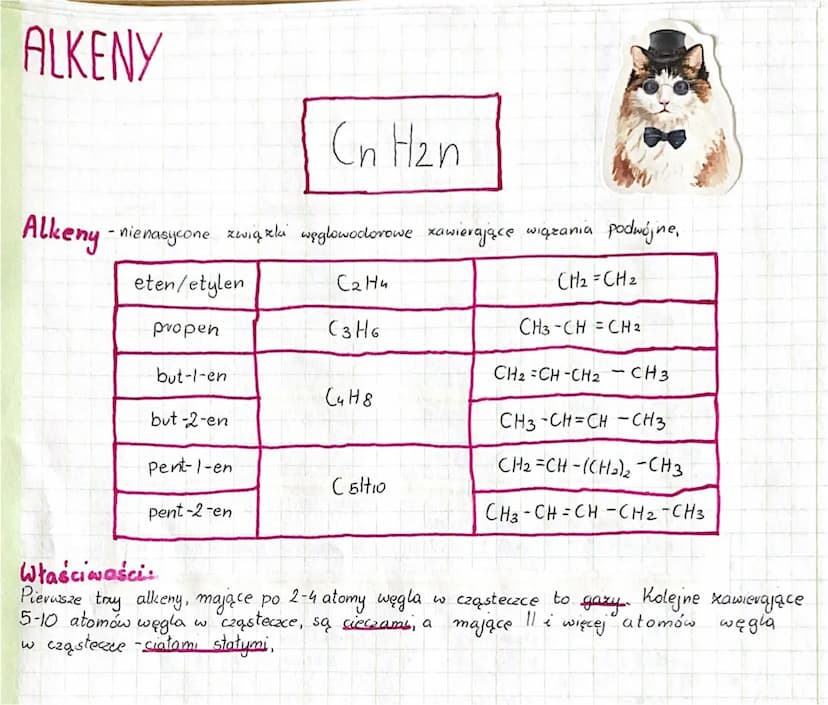 ALKENY
CnH2n
Alkeny - nienasycone związki węglowodorowe zawierające wiązania podwójne.
eten/etylen C2H4 CH2=CH2
propen C3H6 CH3-CH=CH2
but-1-en C4H8 CH2=CH-CH2-CH3
but-2-en CH3-CH=CH-CH3
pent-1-en C5H10 CH2=CH-(CH2)2-CH3
pent-2-en CH3-CH=CH-CH2-CH3
Właściwości:
Pierwsze trzy alkeny, mające po 2-4 atomy węgla w cząsteczce to gazy. Kolejne zawierające
5-10 atomów węgla w cząsteczce, są cieczami, a mające 11 i więcej atomów węgla
w cząsteczce - ciałami stałymi.